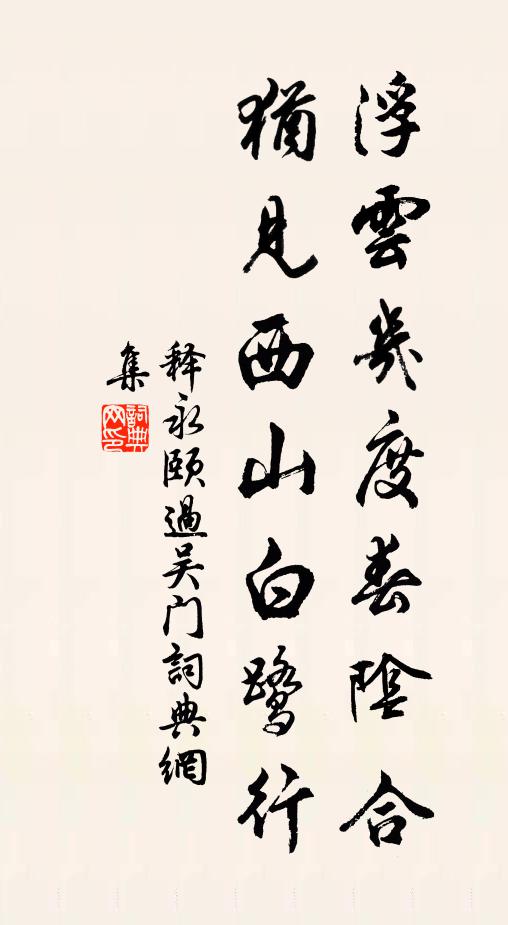 浮雲幾度春陰合
猶見西山白鷺行
释永颐過吴门詞典網
集
詞典网印